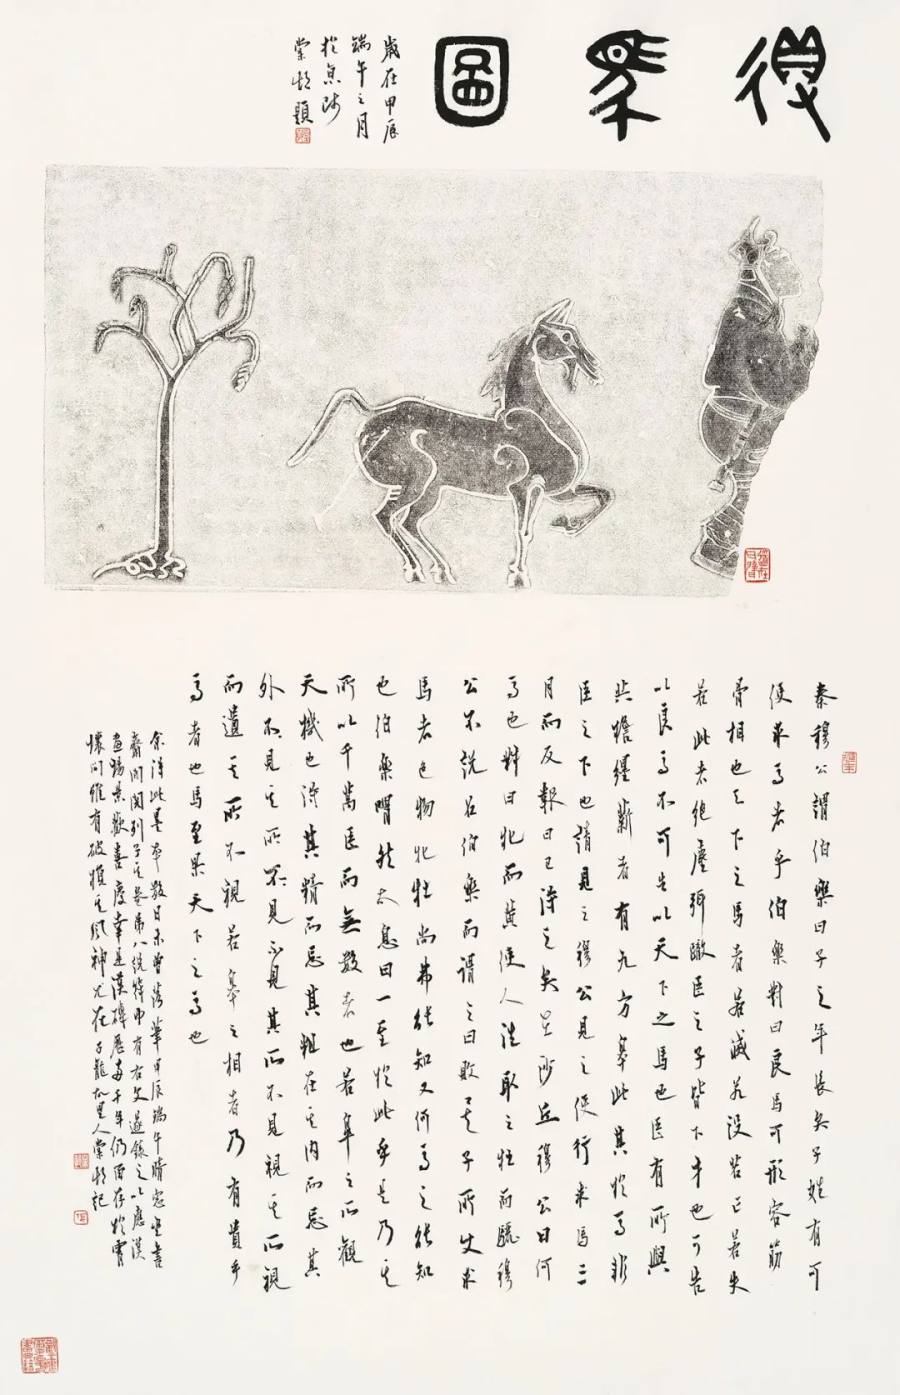 得馬圖
歲在甲辰
端午之月
於京師
棠題
秦穆公謂伯樂曰子之年長矣子姓有可
使求馬者乎伯樂對曰良馬可形容筋
骨相也天下之馬者若滅若沒若亡若失
若此者絕塵弭轍臣之子皆下才也可告
以良馬不可告以天下之馬也臣有所與
共擔纆薪者有九方皋此其於馬非
臣之下也請見之穆公見之使行求馬三
月而反報曰已得之矣在沙丘穆公曰何
馬也對曰牝而黃使人往取之牡而驪穆
公不說召伯樂而謂之曰敗矣子所使求
馬者色物牝牡尚弗能知又何馬之能知
也伯樂喟然太息曰一至於此乎是乃其
所以千萬臣而無數者也若皋之所觀
天機也得其精而忘其粗在其內而忘其
外不見其所不見不見其所不見視其所視
而遺其所不視若皋之相者乃有貴乎
馬者也馬至果天下之馬也
余得此墨本數日未曾落筆甲辰端午晴窗坐書
齋間閱列子其卷第八說符中有右文遂錄之以應漢
畫歡喜慶幸是漢磚歷兩千年仍留存於霄
壤間雖有破損其風神尤在人棠記